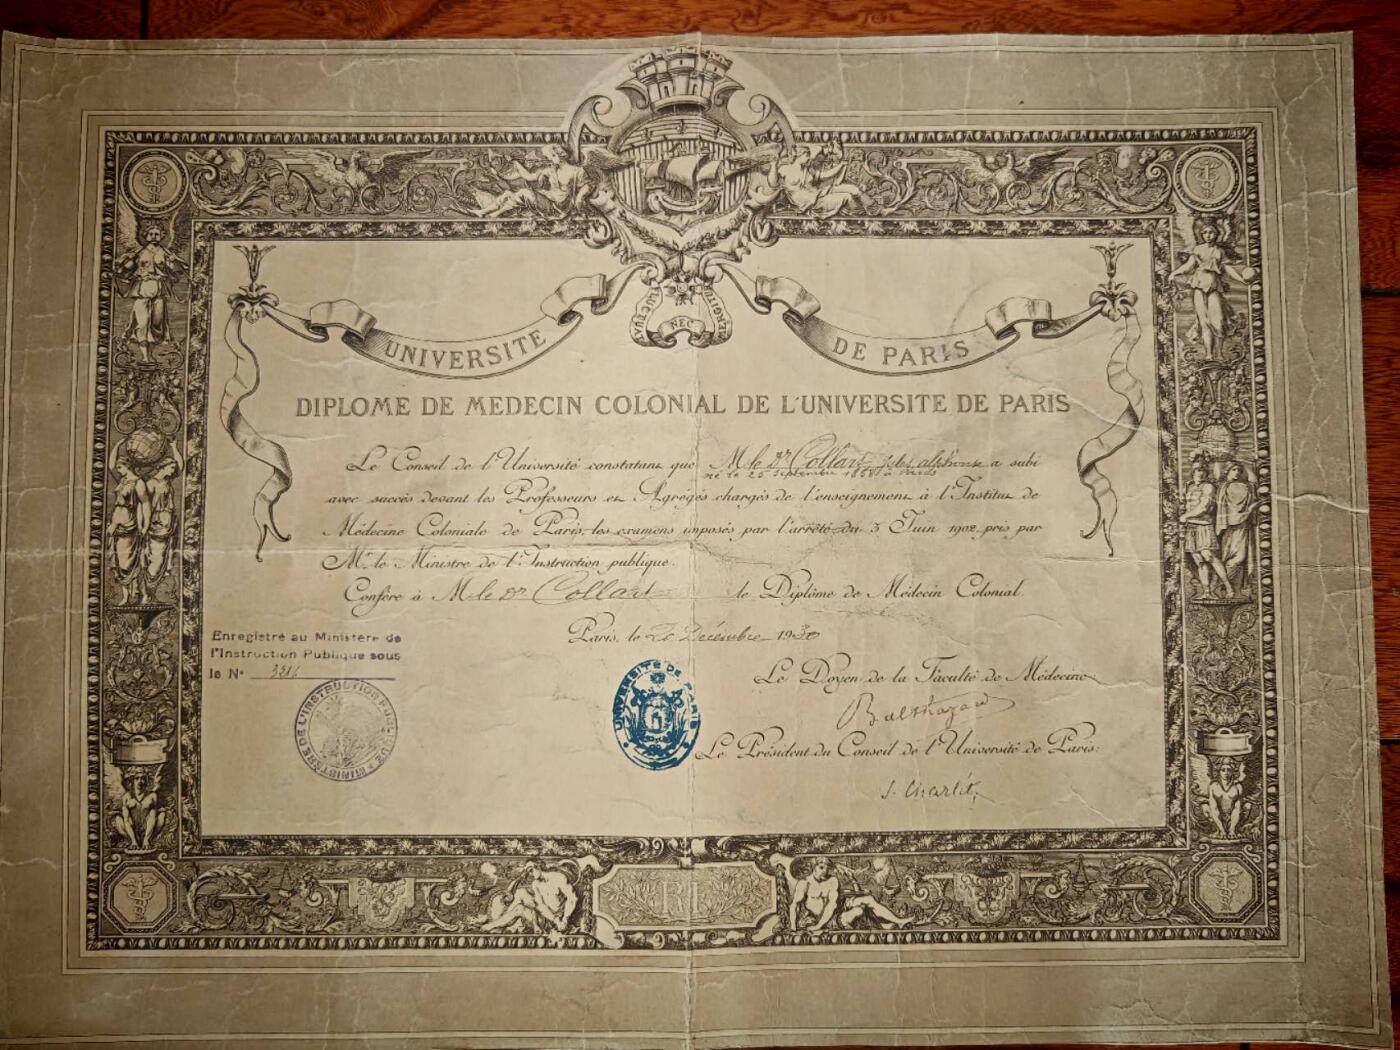 FLUCTUAT
NEC
MERGITUR
UNIVERSITE DE PARIS
DIPLOME DE MEDECIN COLONIAL DE L'UNIVERSITE DE PARIS
Le Conseil de l'Université constatant que M. le Dr Collart Jules alphonse a subi
né le 25 Septembre 1858 à
avec succès devant les Professeurs et Agrégés chargés de l'enseignement à l'Institut de
Médecine Coloniale de Paris, les examens imposés par l'arrêté du 3 Juin 1902 pris par
Mr. le Ministre de l'Instruction publique.
Confère à M. le Dr Collart le Diplôme de Médecin Colonial.
Paris, le 20 Décembre 1930
Enregistré au Ministère de
l'Instruction Publique sous
le No
MINISTÈRE DE L'INSTRUCTION PUBLIQUE
UNIVERSITE DE PARIS
Le Doyen de la Faculté de Médecine
Balthazard
Le Président du Conseil de l'Université de Paris:
S. Charléty
RF